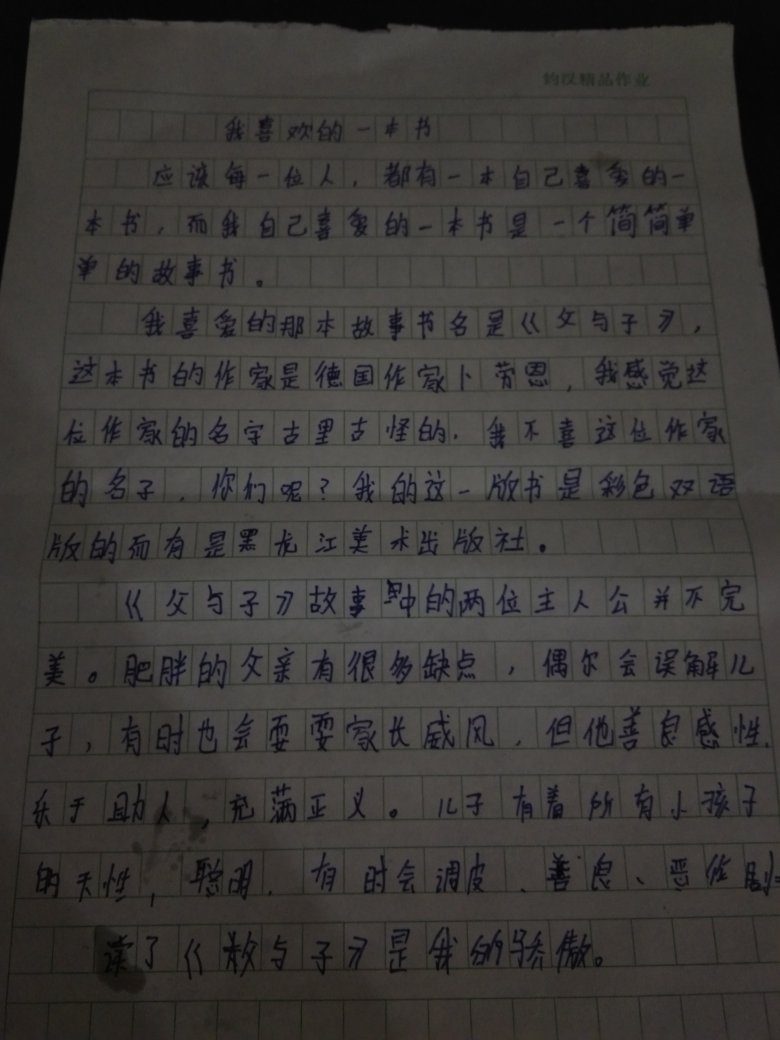 钧汉精品作业
我喜欢的一本书
应该每一位人，都有一本自己喜爱的一
本书，而我自己喜爱的一本书是一个简简单
单的故事书。
我喜爱的那本故事书名是《父与子》，
这本书的作家是德国作家卜劳恩，我感觉这
位作家的名字古里古怪的，我不喜这位作家
的名子，你们呢？我的这一版书是彩色双语
版的而有是黑龙江美术出版社。
《父与子》故事中的两位主人公并不完
美。肥胖的父亲有很多缺点，偶尔会误解儿
子，有时也会耍耍家长威风，但他善良感性，
乐于助人，充满正义。儿子有着所有小孩子
的天性，聪明，有时会调皮、善良、恶作剧
读了《父与子》是我的骄傲。